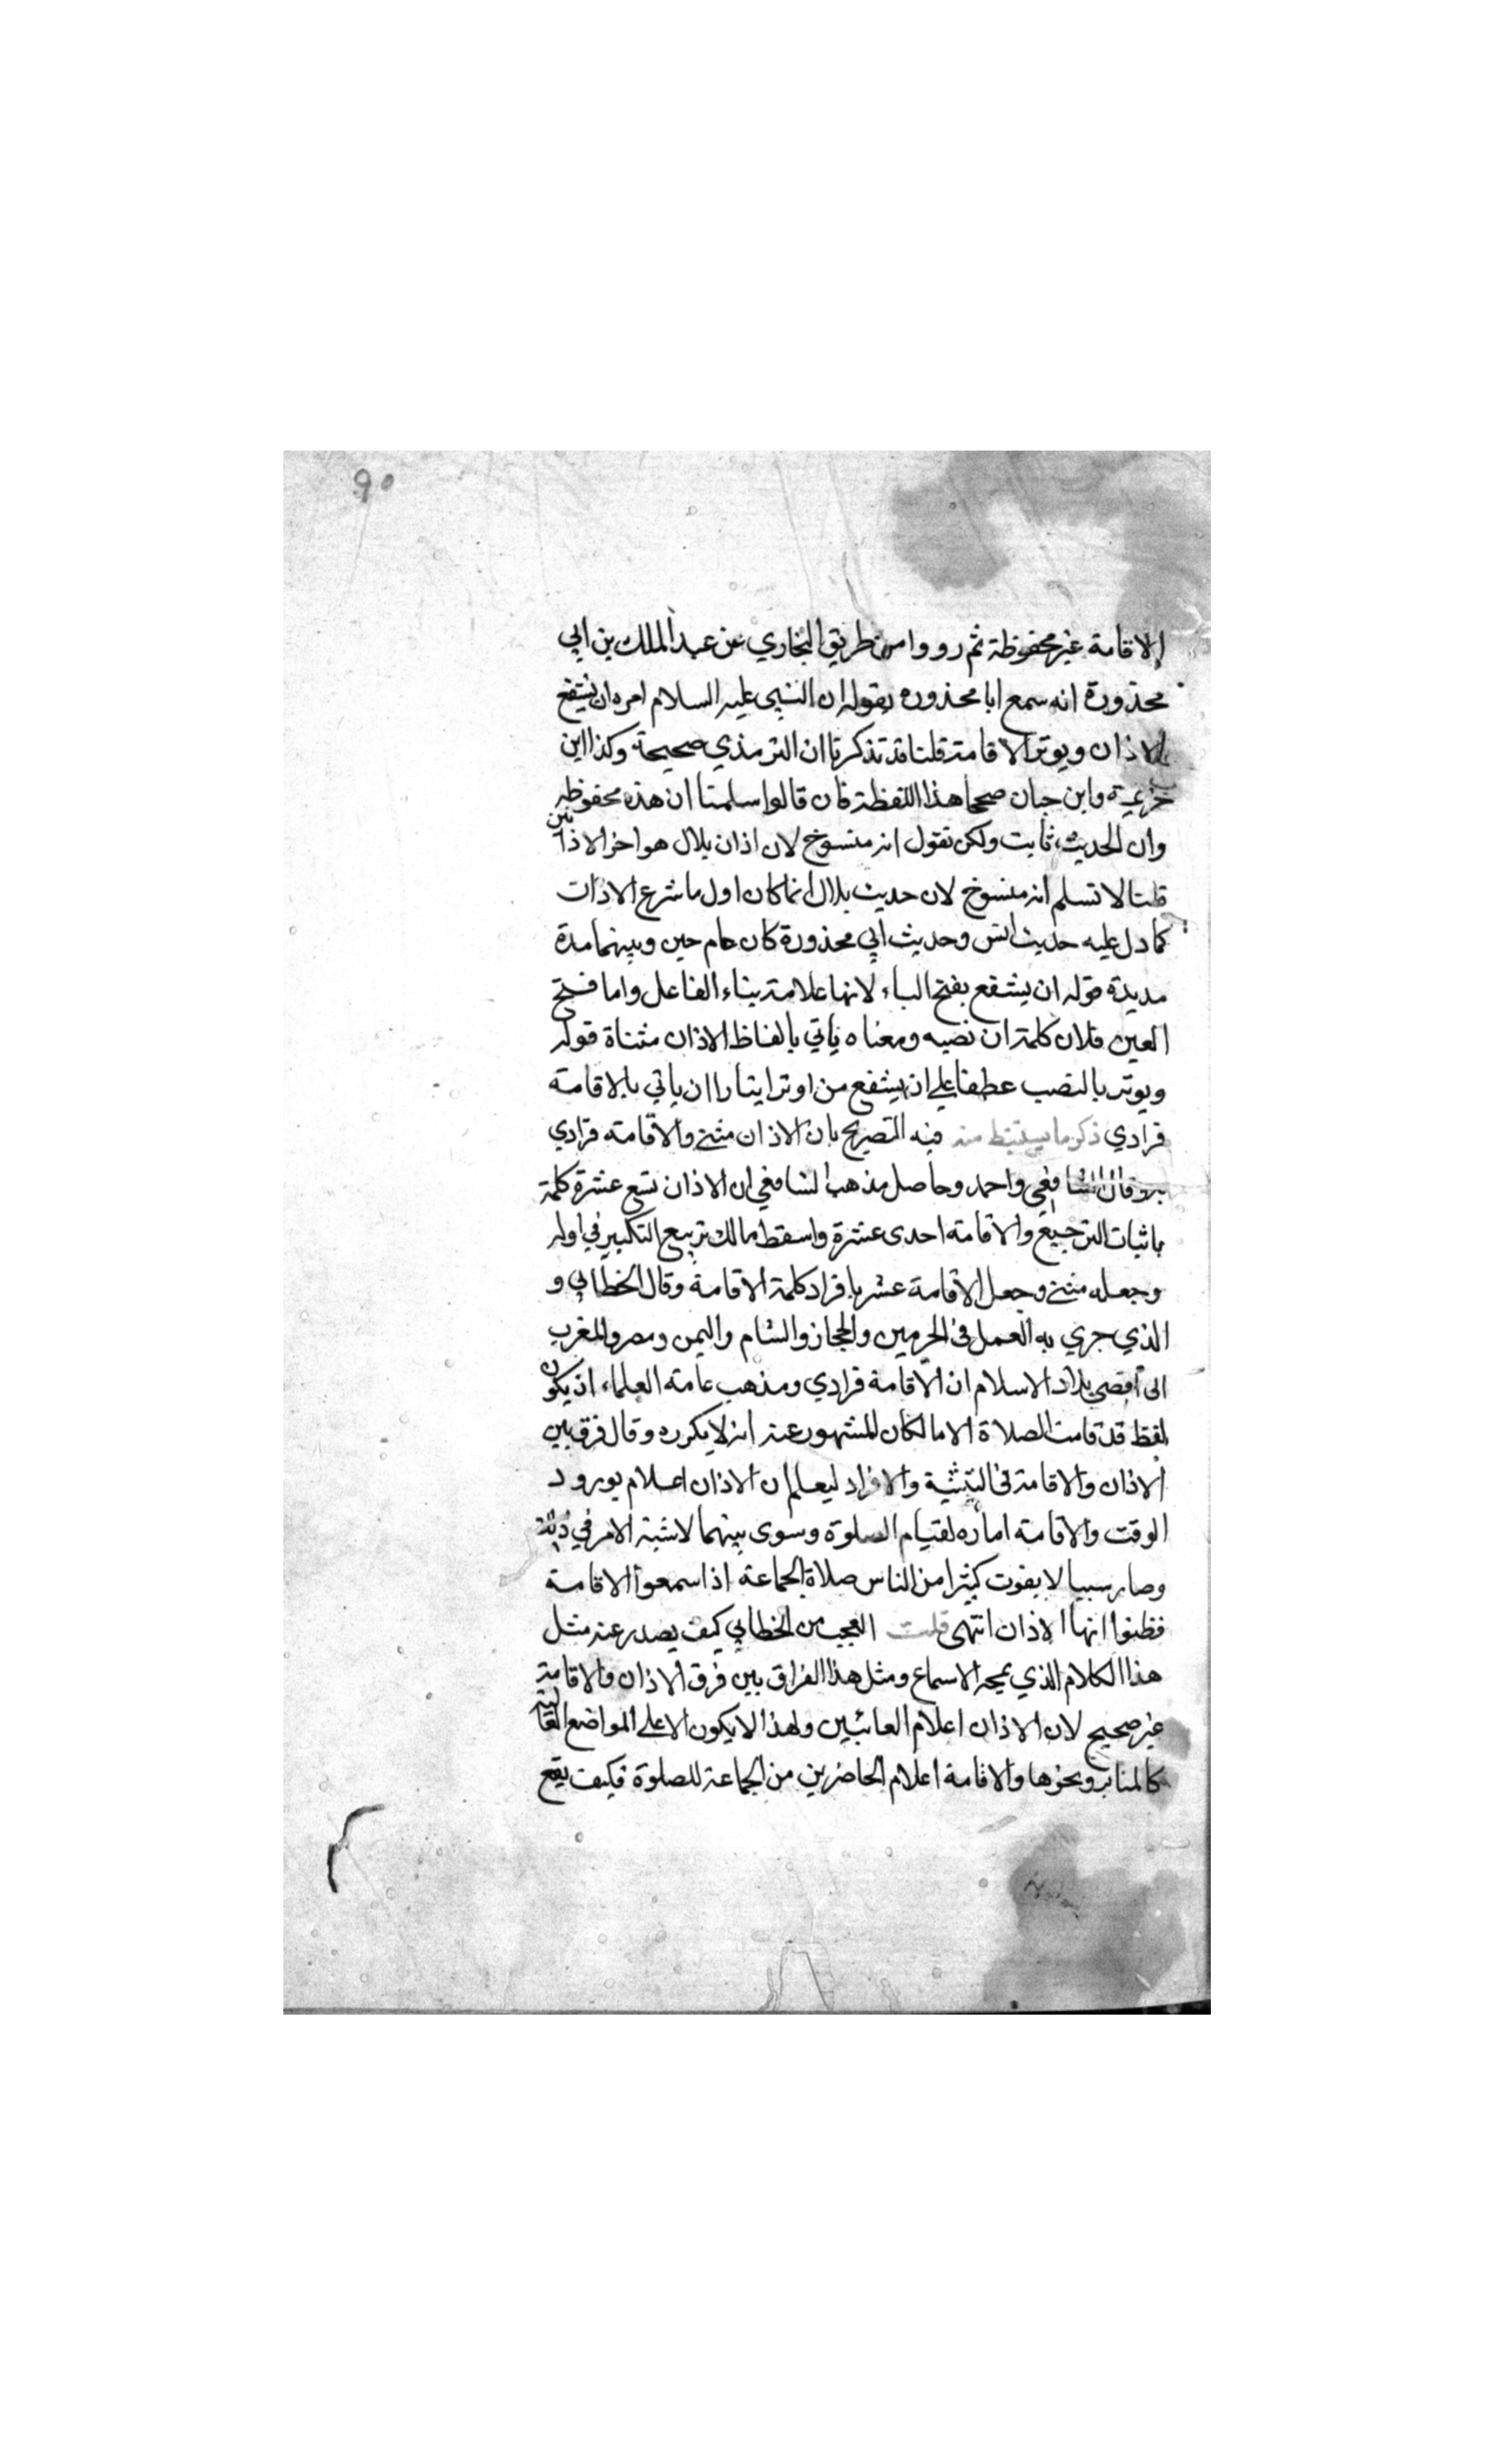 ٩٥
الاقامة غير محفوظة ثم رووا من طريق البخاري عن عبد الملك بن ابي
محذورة انه سمع ابا محذوره يقول ان النبي عليه السلام امره ان يشفع
الاذان ويوتر الاقامة قلنا قد تذكرنا ان الترمذي صحيحة وكذا ابن
خزيمة وابن حبان صححا هذا اللفظة فان قالوا سلمنا ان هذه محفوظه
وان الحديث ثابت ولكن نقول انه منسوخ لان اذان بلال هو اخر الاذانين
قلنا لا نسلم انه منسوخ لان حديث بلال انما كان اول ما شرع الاذان
كما دل عليه حديث انس وحديث ابي محذورة كان عام حين وبينهما مدة
مديدة قوله ان يشفع بفتح الياء لانها علامة بناء الفاعل واما فتح
العين فلان كلمة ان نصبه ومعناه ياتي بالفاظ الاذان مثناة قوله
ويوتر بالنصب عطفا على ان يشفع من اوتر ايتارا ان ياتي بالاقامة
فرادي ذكر ما يستنبط منه فيه التصريح بان الاذان مثنى والاقامة فرادي
وبه قال الشافعي واحمد وحاصل مذهب الشافعي ان الاذان تسع عشرة كلمة
باثبات الترجيع والاقامة احدى عشرة واسقط مالك تربيع التكبير في اوله
وجعله مثنى وجعل الاقامة عشر بافراد كلمة الاقامة وقال الخطابي و
الذي جري به العمل في الحرمين والحجاز والشام واليمن ومصر والمغرب
الى اقصى بلاد الاسلام ان الاقامة فرادي ومذهب عامة العلماء ان يكون
لفظ قد قامت الصلاة الا مالكان المشهور عنه انه لا يكرره وقال فرق بين
الاذان والاقامة في التثنية والافراد ليعلم ان الاذان اعلام بورود
الوقت والاقامة اماره لقيام الصلوة وسوى بينهما لاشتبه الامر في ذلك
وصار سببا لا يفوت كثيرا من الناس صلاة الجماعة اذا سمعوا الاقامة
فظنوا انها الاذان انتهى قلت العجب من الخطابي كيف يصدر عنه مثل
هذا الكلام الذي يمجه الاسماع ومثل هذا الفراق بين فرق الاذان والاقامة
غير صحيح لان الاذان اعلام الغائبين ولهذا لا يكون الا على المواضع العالية
كالمنابر ونحوها والاقامة اعلام الحاضرين من الجماعة للصلوة فكيف يقع